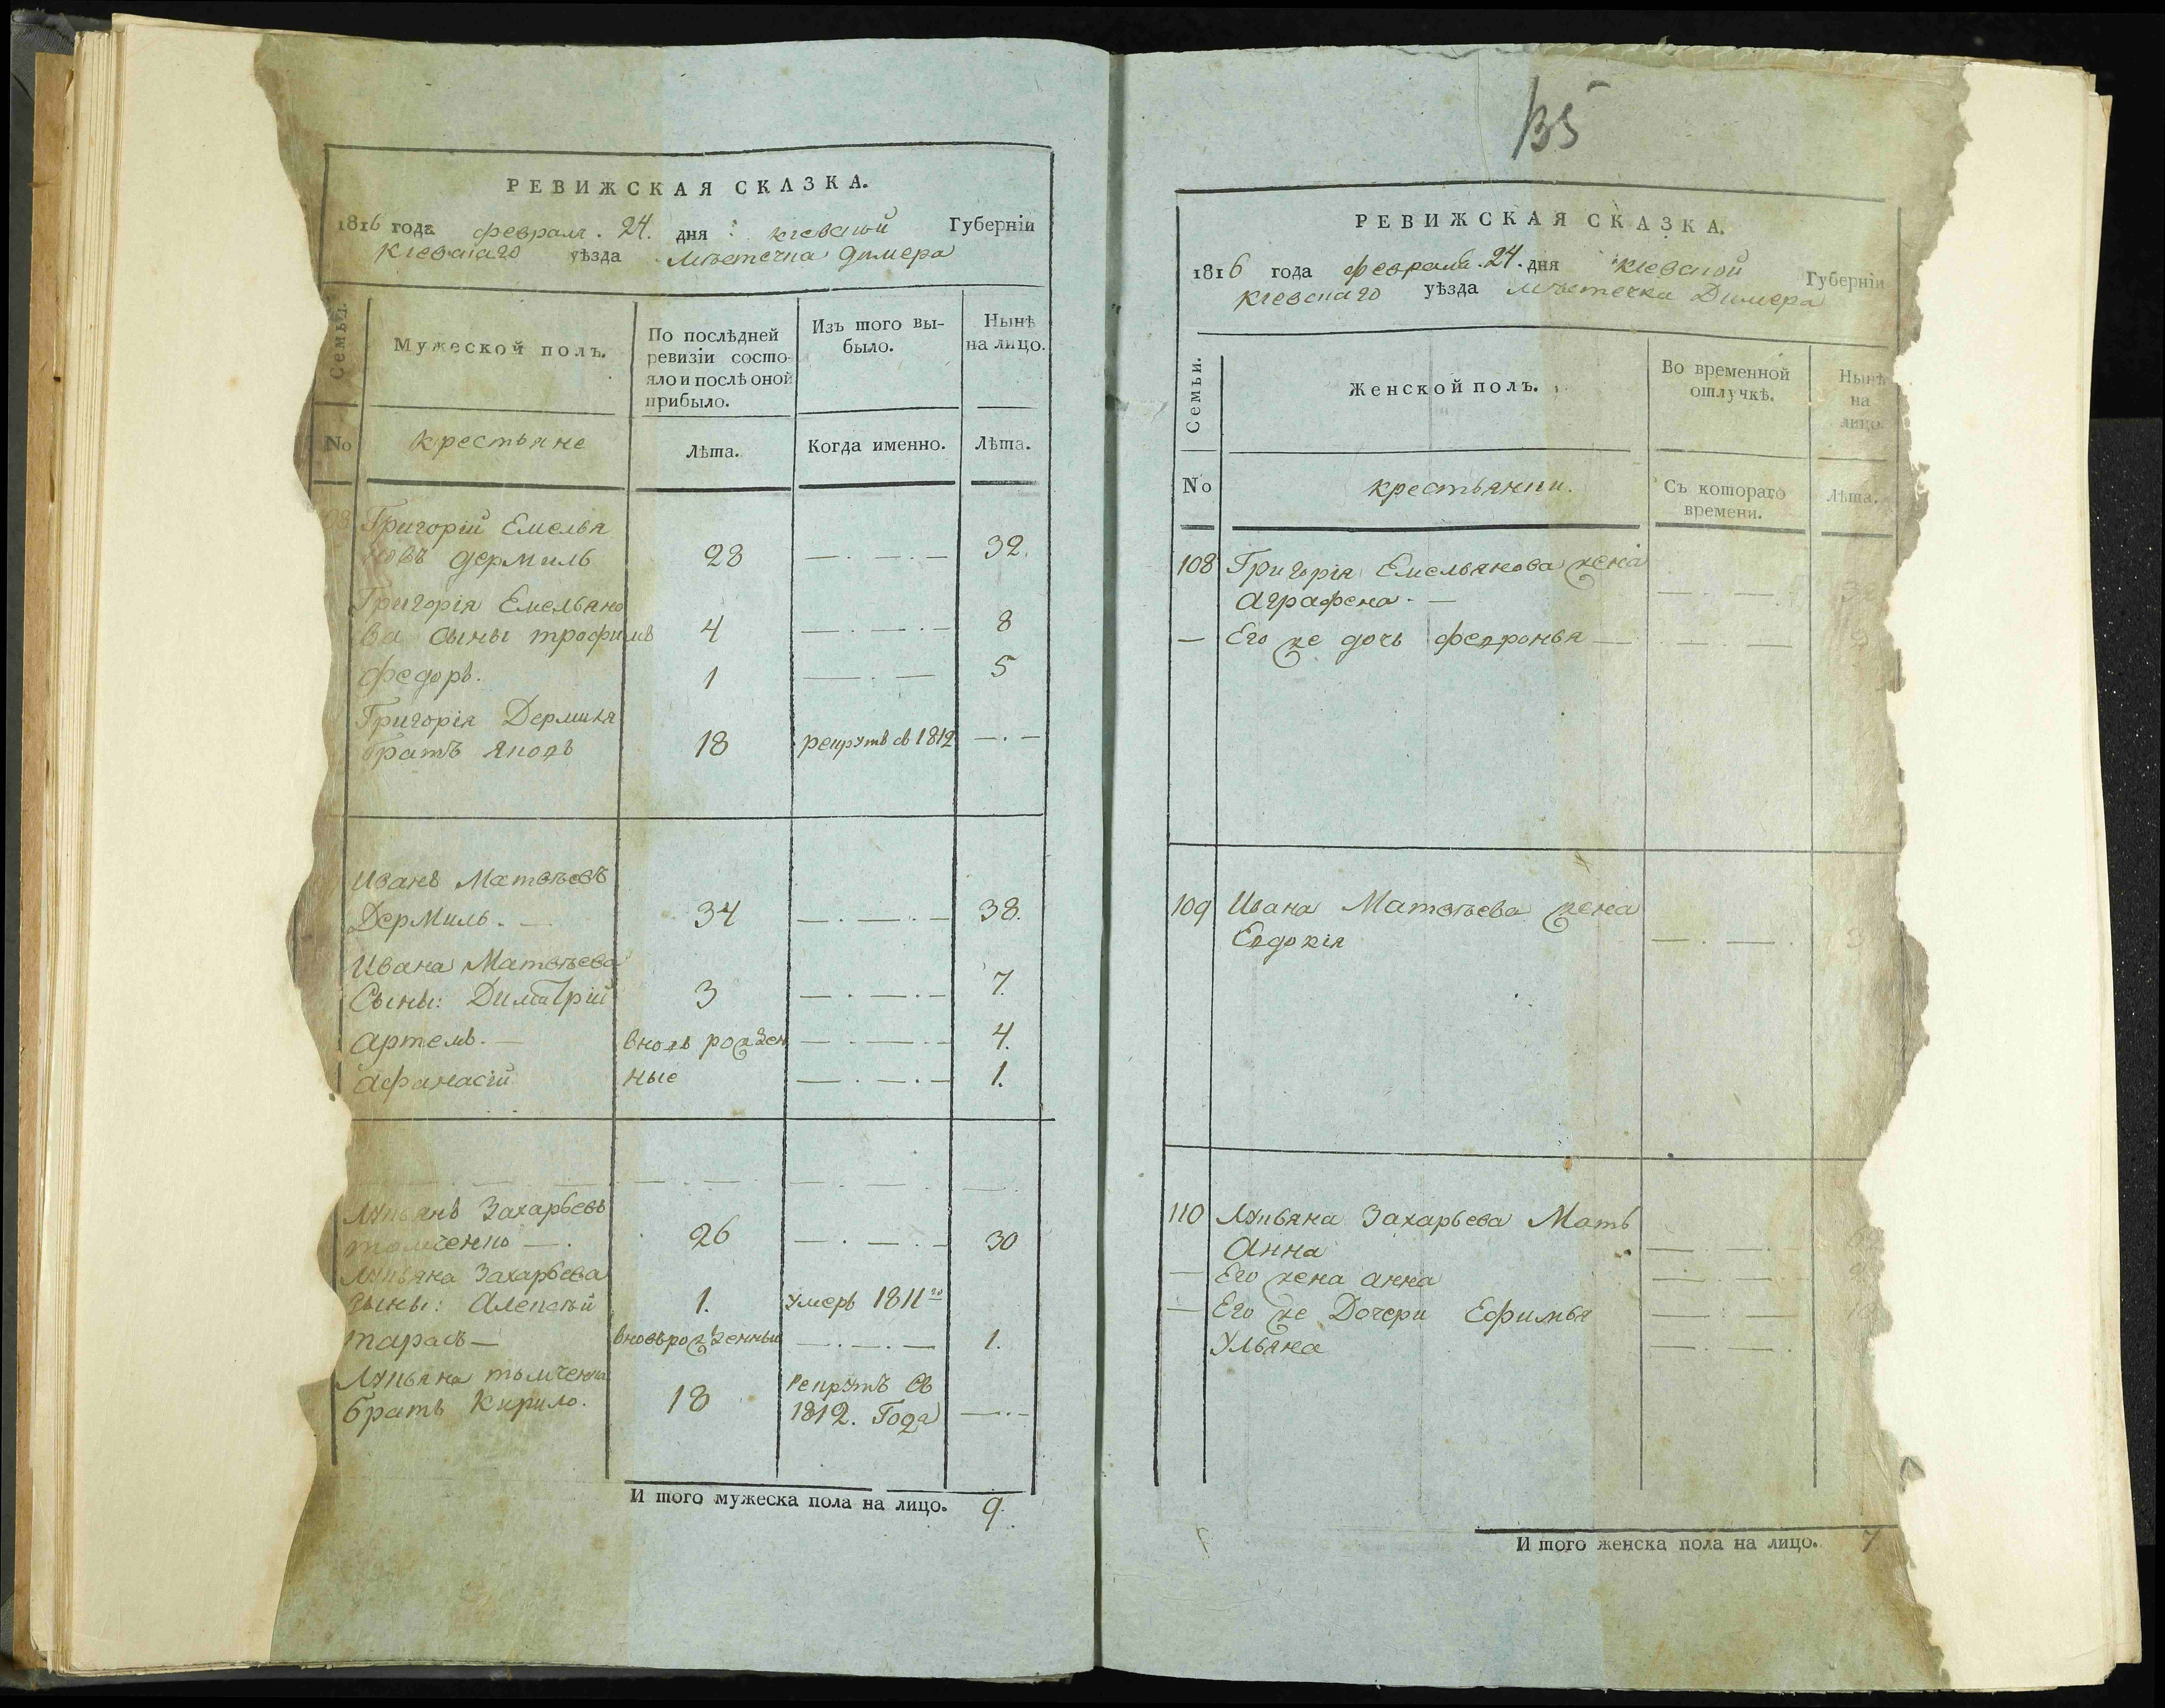 РЕВИЖСКАЯ СКАЗКА.
1816 года февраля. 24. дня кіевской Губерніи
Кіевскаго уѣзда мѣстечка Димера
Семьи.
Мужеской полъ.
По послѣдней
ревизіи состо-
яло и послѣ оной
прибыло.
Изъ того вы-
было.
Нынѣ
на лицо.
No
крестьяне
Лѣта.
Когда именно.
Лѣта.
Григорій Емелья
новъ дермиль 28 32.
Григорія Емельяно
ва сыны трофимъ 4 8
федоръ. 1 5
Григорія Дермиля
братъ яковъ 18 рекрутъ въ 1812
Иванъ Матвѣевъ
Дермиль. 34 38.
Ивана Матвѣева
Сыны: Димитрій 3 7.
артемъ. вновь рожден 4.
афанасій ные 1.
Лукьянъ Захарьевъ
толченко 26 30
Лукьяна Захарьева
сыны: Алексѣй 1. умеръ 1811го
тарасъ вновьрожденный 1.
Лукьяна толченка
братъ Кирило. 18 рекрутъ въ
1812. Года
И того мужеска пола на лицо. 9.
135
РЕВИЖСКАЯ СКАЗКА.
1816 года февраля. 24. дня кіевской Губерніи
кіевскаго уѣзда мѣстечка Димера
Семьи.
Женской полъ.
Во временной
отлучкѣ.
Нынѣ
на
лицо.
No
крестьянки.
Съ котораго
времени.
Лѣта.
108 Григорія Емельянова жена
аграфена.
Его же дочь февронья
109 Ивана Матвѣева жена
Евдокія
110 Лукьяна Захарьева Мать
Анна
Его жена анна
Его же Дочери Ефимья
Ульяна
И того женска пола на лицо. 7